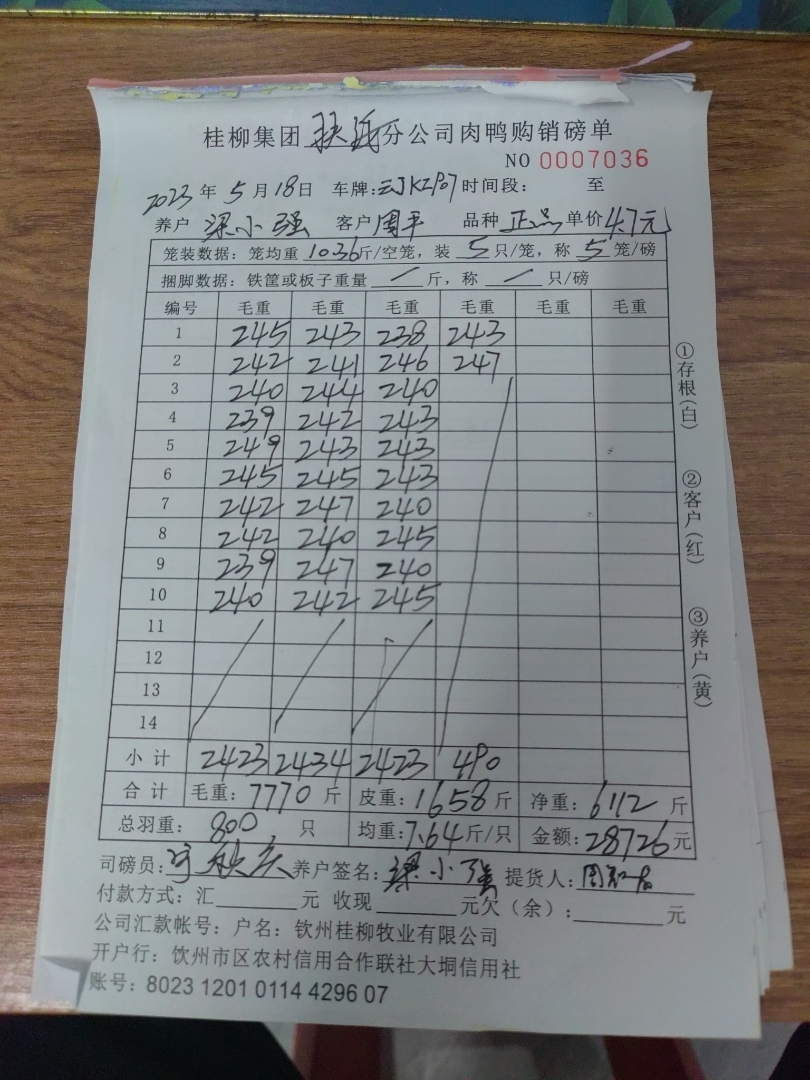 桂柳集团 分公司肉鸭购销磅单
NO 0007036
2023 年 5 月 18 日 车牌: 时间段: 至
养户 梁小强 客户 周平 品种 正品 单价 4.7元
笼装数据: 笼均重 10.36 斤/空笼, 装 5 只/笼, 称 5 笼/磅
捆脚数据: 铁筐或板子重量 / 斤, 称 / 只/磅
编号 毛重 毛重 毛重 毛重 毛重 毛重
1 245 243 238 243
2 242 241 246 247
3 240 244 240
4 239 242 243
5 249 243 243
6 245 245 243
7 242 247 240
8 242 240 245
9 239 247 240
10 240 242 245
11
12
13
14
小计 2423 2434 2423 490
合计 毛重: 7770 斤 皮重: 1658 斤 净重: 6112 斤
总羽重: 800 只 均重: 7.64 斤/只 金额: 28726 元
司磅员: 养户签名: 梁小强 提货人:
付款方式: 汇 元 收现 元欠(余): 元
公司汇款帐号: 户名: 钦州桂柳牧业有限公司
开户行: 钦州市区农村信用合作联社大垌信用社
账号: 8023 1201 0114 4296 07
①存根(白)
②客户(红)
③养户(黄)